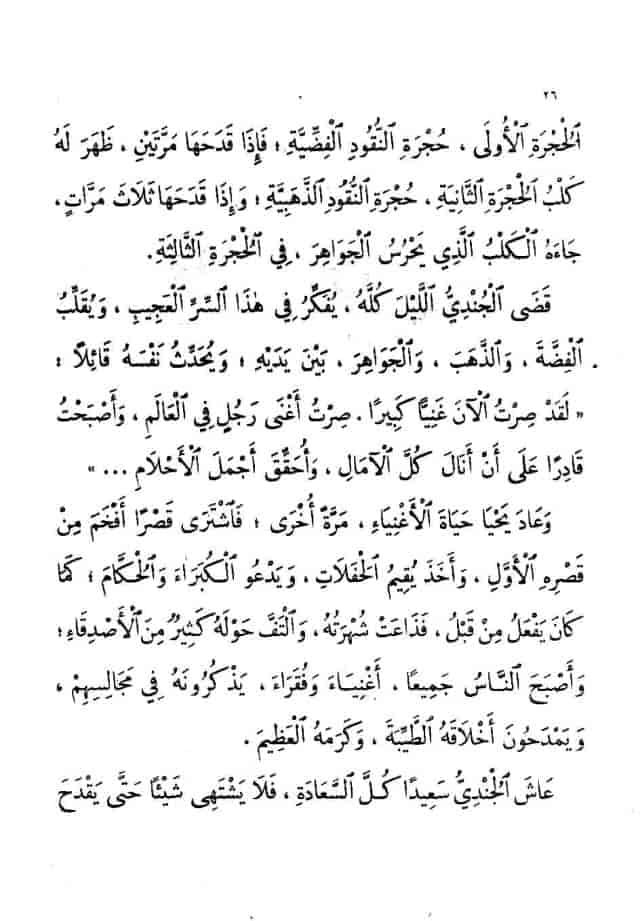 ٢٦
ٱلْحُجْرَةِ ٱلْأُولَى ، حُجْرَةِ ٱلنُّقُودِ ٱلْفِضِّيَّةِ ؛ فَإِذَا قَدَحَهَا مَرَّتَيْنِ ، ظَهَرَ لَهُ
كَلْبُ ٱلْحُجْرَةِ ٱلثَّانِيَةِ ، حُجْرَةِ ٱلنُّقُودِ ٱلذَّهَبِيَّةِ ؛ وَإِذَا قَدَحَهَا ثَلَاثَ مَرَّاتٍ ،
جَاءَهُ ٱلْكَلْبُ ٱلَّذِي يَحْرُسُ ٱلْجَوَاهِرَ ، فِي ٱلْحُجْرَةِ ٱلثَّالِثَةِ .
قَضَى ٱلْجُنْدِيُّ ٱللَّيْلَ كُلَّهُ ، يُفَكِّرُ فِي هٰذَا ٱلسِّرِّ ٱلْعَجِيبِ ، وَيُقَلِّبُ
ٱلْفِضَّةَ ، وَٱلذَّهَبَ ، وَٱلْجَوَاهِرَ ، بَيْنَ يَدَيْهِ ؛ وَيُحَدِّثُ نَفْسَهُ قَائِلًا :
« لَقَدْ صِرْتُ ٱلْآنَ غَنِيًّا كَبِيرًا . صِرْتُ أَغْنَى رَجُلٍ فِي ٱلْعَالَمِ ، وَأَصْبَحْتُ
قَادِرًا عَلَى أَنْ أَنَالَ كُلَّ ٱلْآمَالِ ، وَأُحَقِّقَ أَجْمَلَ ٱلْأَحْلَامِ ... »
وَعَادَ يَحْيَا حَيَاةَ ٱلْأَغْنِيَاءِ ، مَرَّةً أُخْرَى ؛ فَٱشْتَرَى قَصْرًا أَفْخَمَ مِنْ
قَصْرِهِ ٱلْأَوَّلِ ، وَأَخَذَ يُقِيمُ ٱلْحَفَلَاتِ ، وَيَدْعُو ٱلْكُبَرَاءَ وَٱلْحُكَّامَ ؛ كَمَا
كَانَ يَفْعَلُ مِنْ قَبْلُ ، فَذَاعَتْ شُهْرَتُهُ ، وَٱلْتَفَّ حَوْلَهُ كَثِيرٌ مِنَ ٱلْأَصْدِقَاءِ ؛
وَأَصْبَحَ ٱلنَّاسُ جَمِيعًا ، أَغْنِيَاءَ وَفُقَرَاءَ ، يَذْكُرُونَهُ فِي مَجَالِسِهِمْ ،
وَيَمْدَحُونَ أَخْلَاقَهُ ٱلطَّيِّبَةَ ، وَكَرَمَهُ ٱلْعَظِيمَ .
عَاشَ ٱلْجُنْدِيُّ سَعِيدًا كُلَّ ٱلسَّعَادَةِ ، فَلَا يَشْتَهِى شَيْئًا حَتَّى يَقْدَحَ